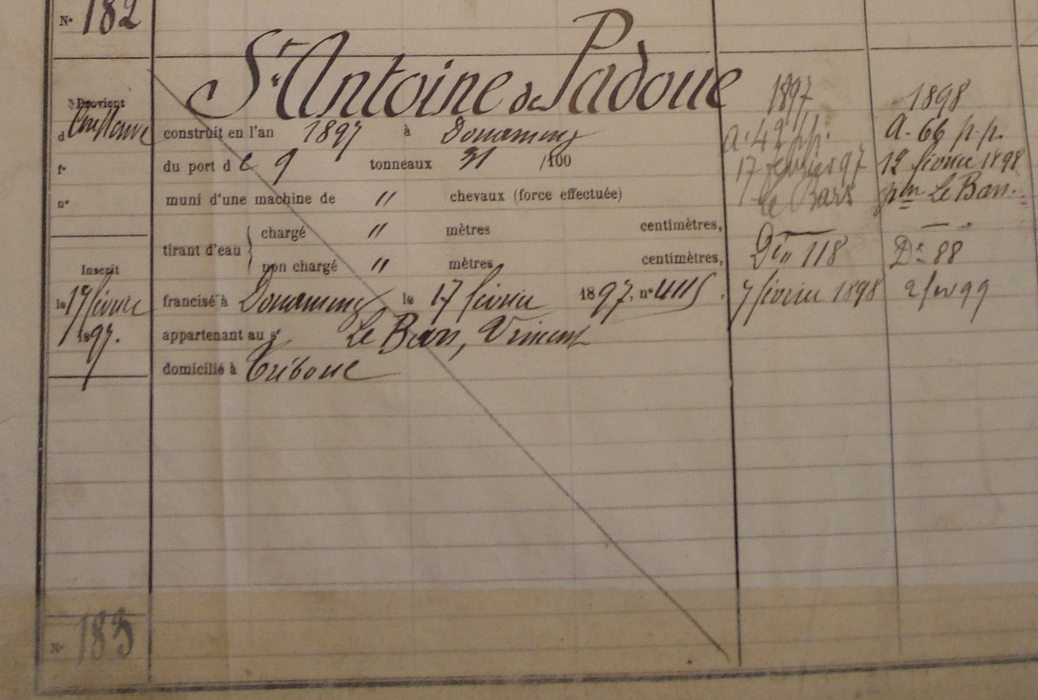 N° 182
St Antoine de Padoue
Provient
d construit en l'an 1897 à Douarnenez
f° du port de 9 tonneaux 31 /100
n° muni d'une machine de " chevaux (force effectuée)
tirant d'eau { chargé " mètres centimètres,
non chargé " mètres centimètres,
Inscrit
le 17 février francisé à Douarnenez le 17 février 1897, n° 4115.
1897. appartenant au sr Le Bars, Vincent
domicilié à Tréboul
1897
a. 42 p.p.
17 février 97
Le Bars
Don 118
7 février 1898
1898
a. 66 p.p.
12 février 1898
Le Bars.
Dn 88
2 fev 99
N° 183